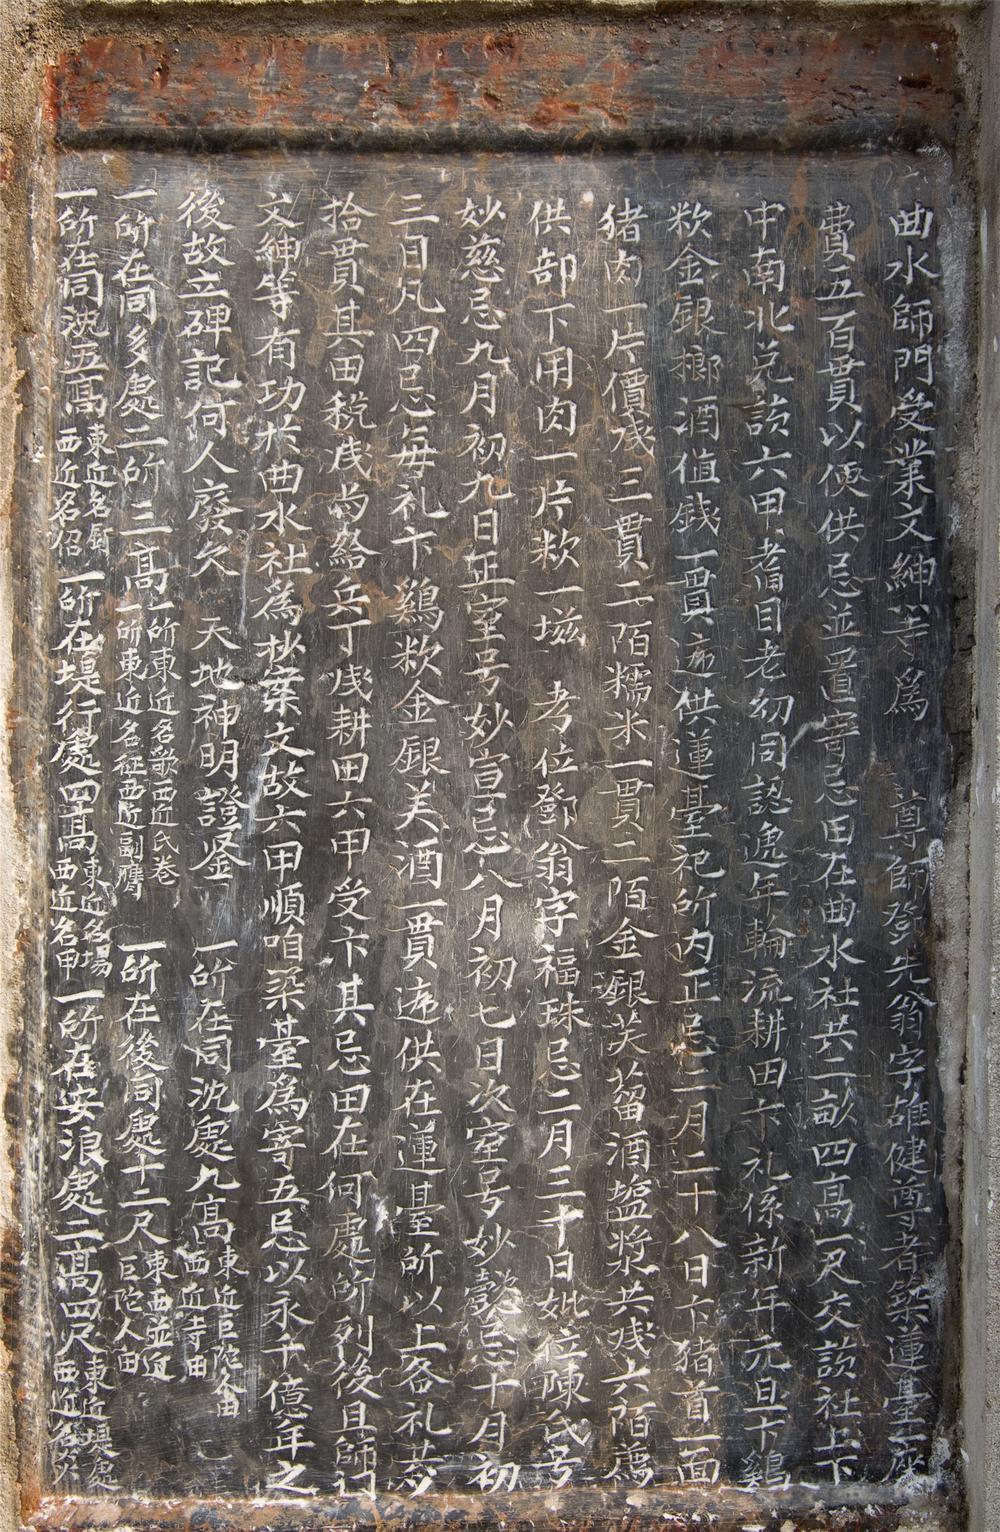 曲水師門受業文紳等爲 尊師鄧先翁字雄健尊者築蓮臺一座
費五百貫以便供忌並置寄忌田在曲水社共一畝四高一尺交該社上下
中南北兑該六甲耆目老幼同認逓年輪流耕田卞礼係新年元旦卞鷄
歀金銀榔酒値錢一貫逓供蓮臺祀所内正忌二月二十八日卞猪首一面
猪肉一片價錢三貫二陌糯米一貫二陌金銀芙蕾酒塩漿共錢六陌薦
供部下用肉一片歀一磁 考位鄧翁字福珠忌二月三十日妣位陳氏号
妙慈忌九月初九日正室号妙宣忌八月初七日次室号妙懿忌十月初
三日凡四忌每礼卞鷄歀金銀美酒一貫逓供在蓮臺所以上各礼共
拾貫其田税錢為給兵丁錢耕田六甲受卞其忌田在何處所列後且師門
文紳等有功於曲水社爲抄案文故六甲順咱築臺爲寄五忌以永千億年之
後故立碑記何人廢欠 天地神明證鉴 一所在同沈處九高東近巨陀人田西近寺田
一所在同多處二所三高一所東近名歌西近氏卷一所東近名征西近副膺 一所在後同處十二尺東西並近巨陀人田
一所在同沈五高東近名厨西近名侶 一所在堤行處四高東近名場西近名甲 一所在安浪處二高四尺東近堤處西近名